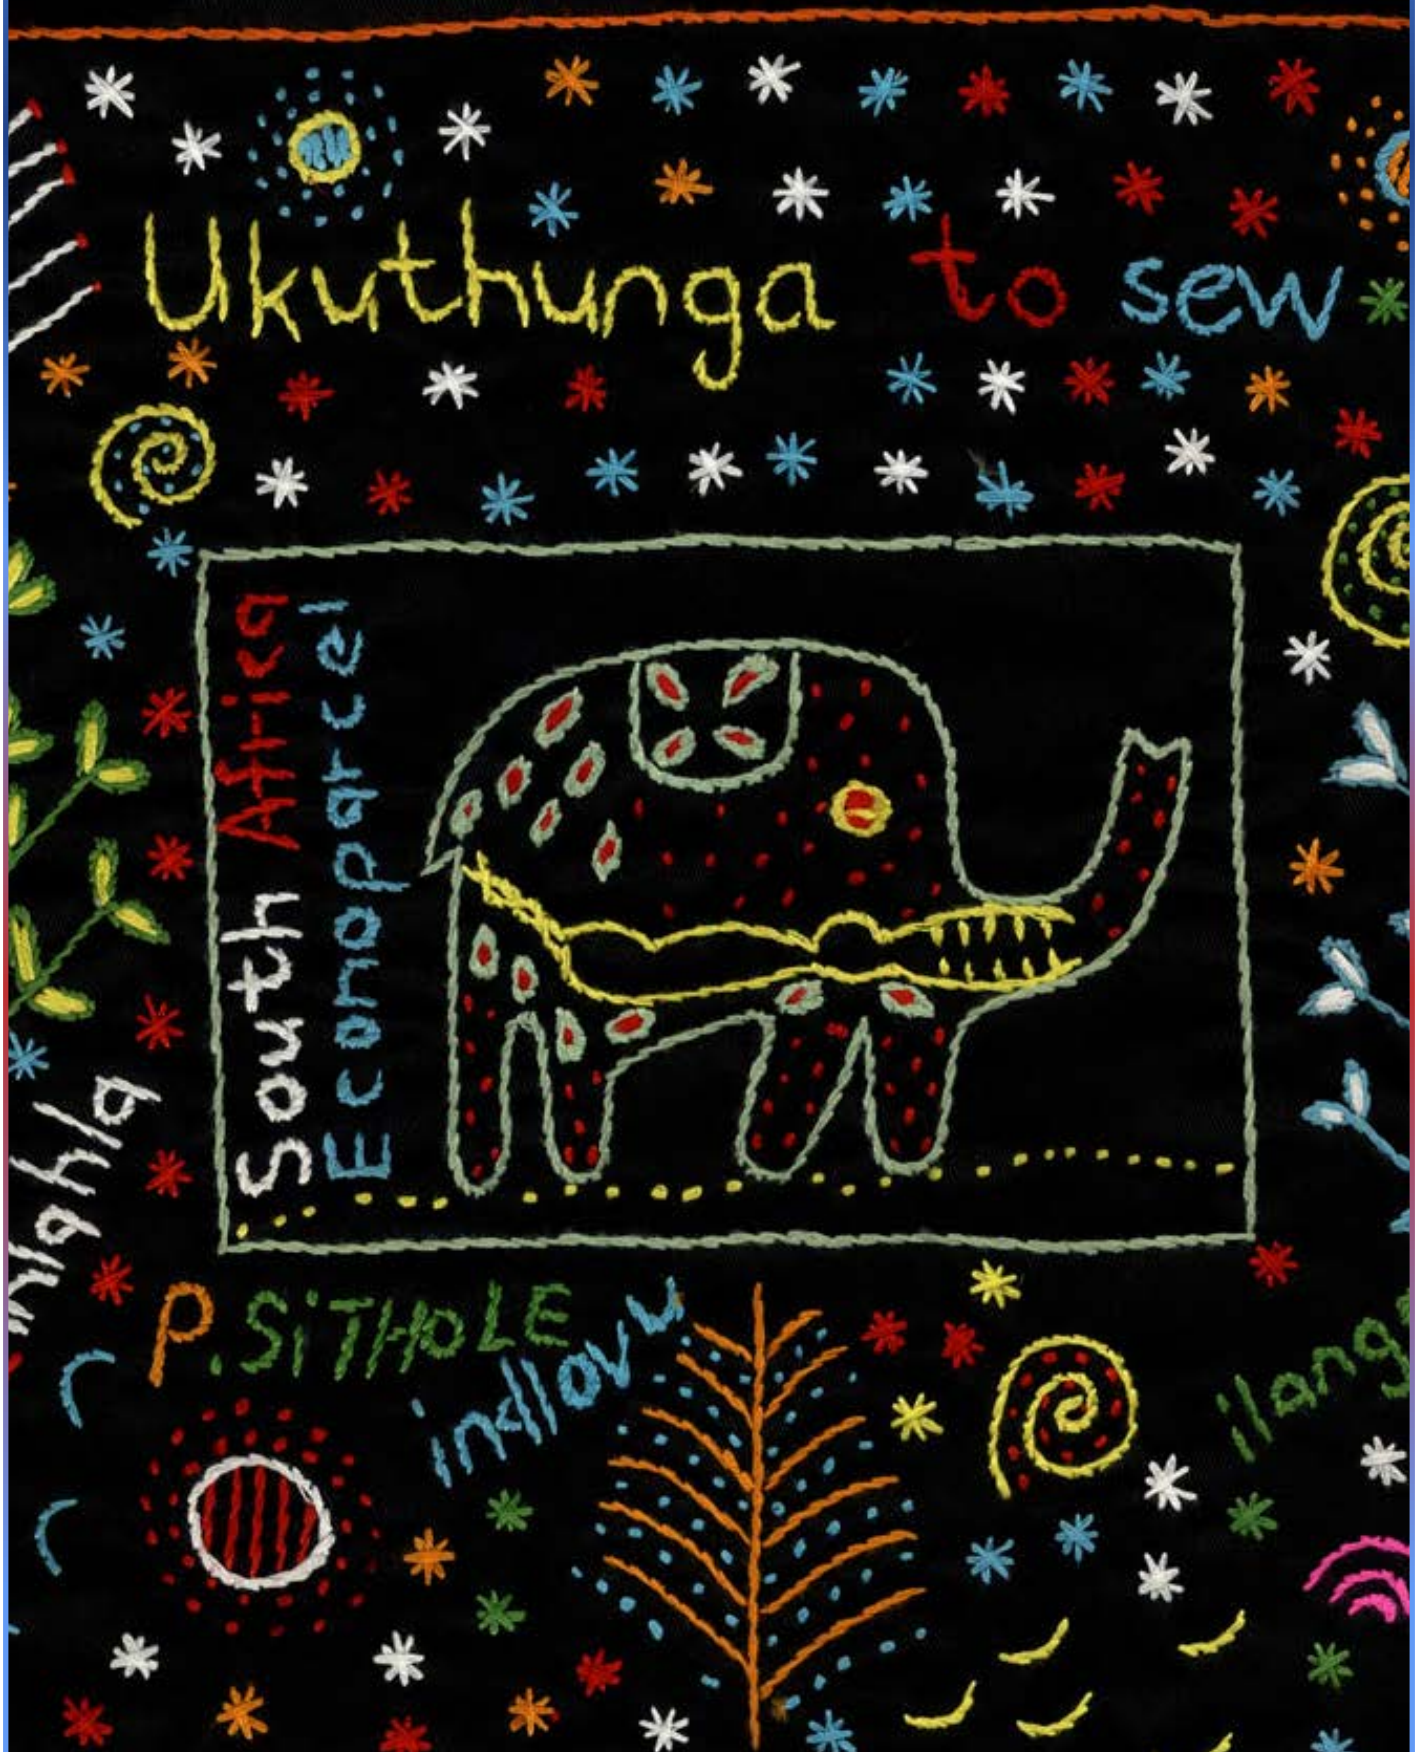 Ukuthunga to sew
South Africa
Econoparcel
P.SiTHOLE
indlovu